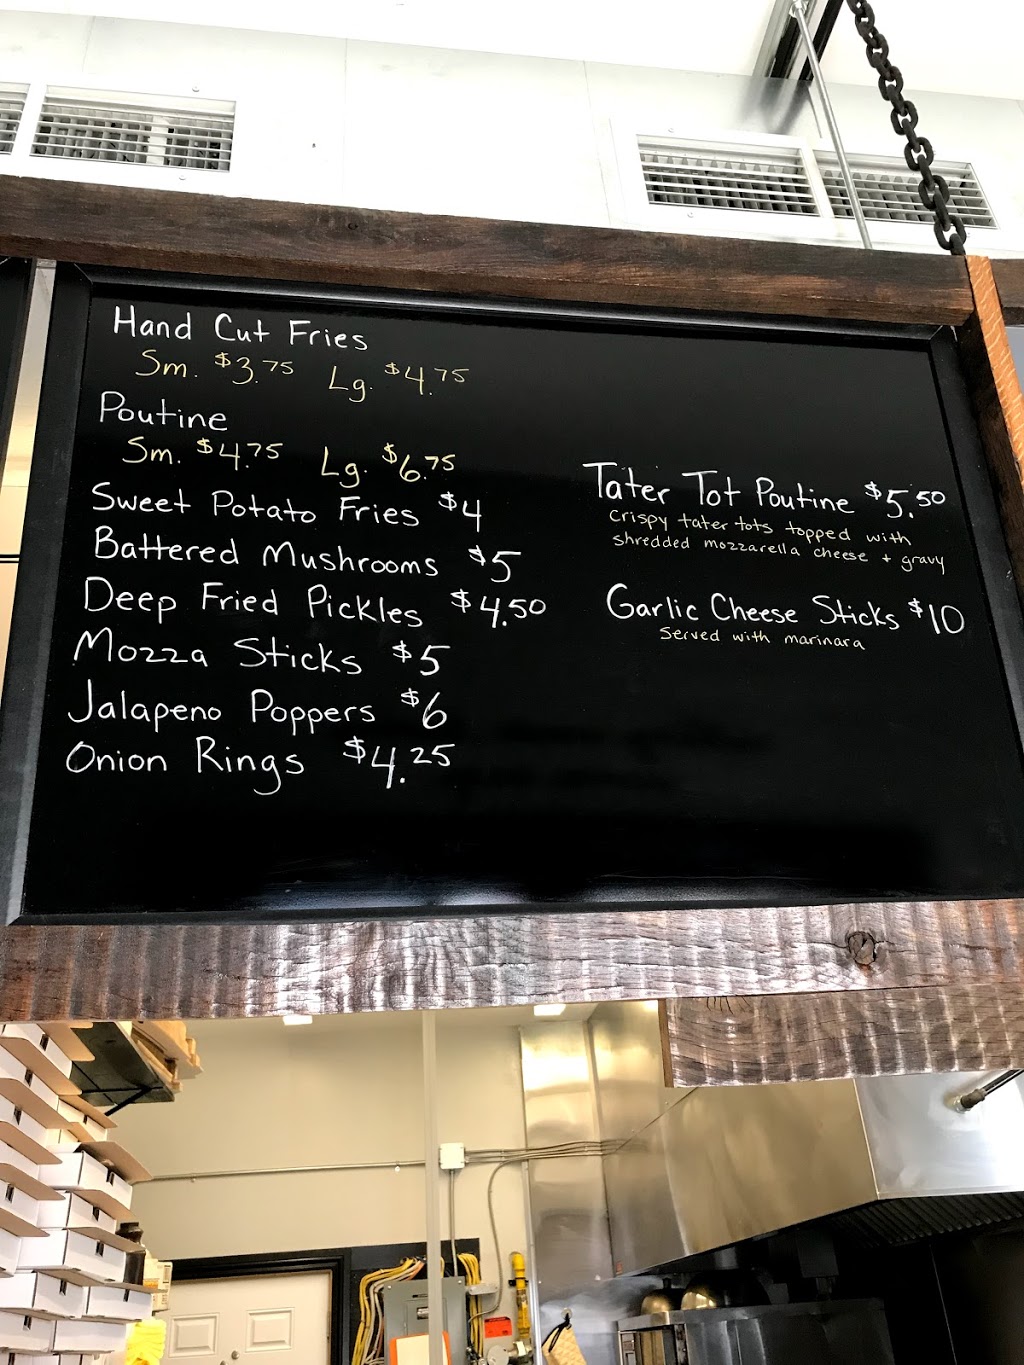 Hand Cut Fries
Sm. $3.75 Lg. $4.75
Poutine
Sm. $4.75 Lg. $6.75
Sweet Potato Fries $4
Battered Mushrooms $5
Deep Fried Pickles $4.50
Mozza Sticks $5
Jalapeno Poppers $6
Onion Rings $4.25
Tater Tot Poutine $5.50
Crispy tater tots topped with
shredded mozzarella cheese + gravy
Garlic Cheese Sticks $10
Served with marinara